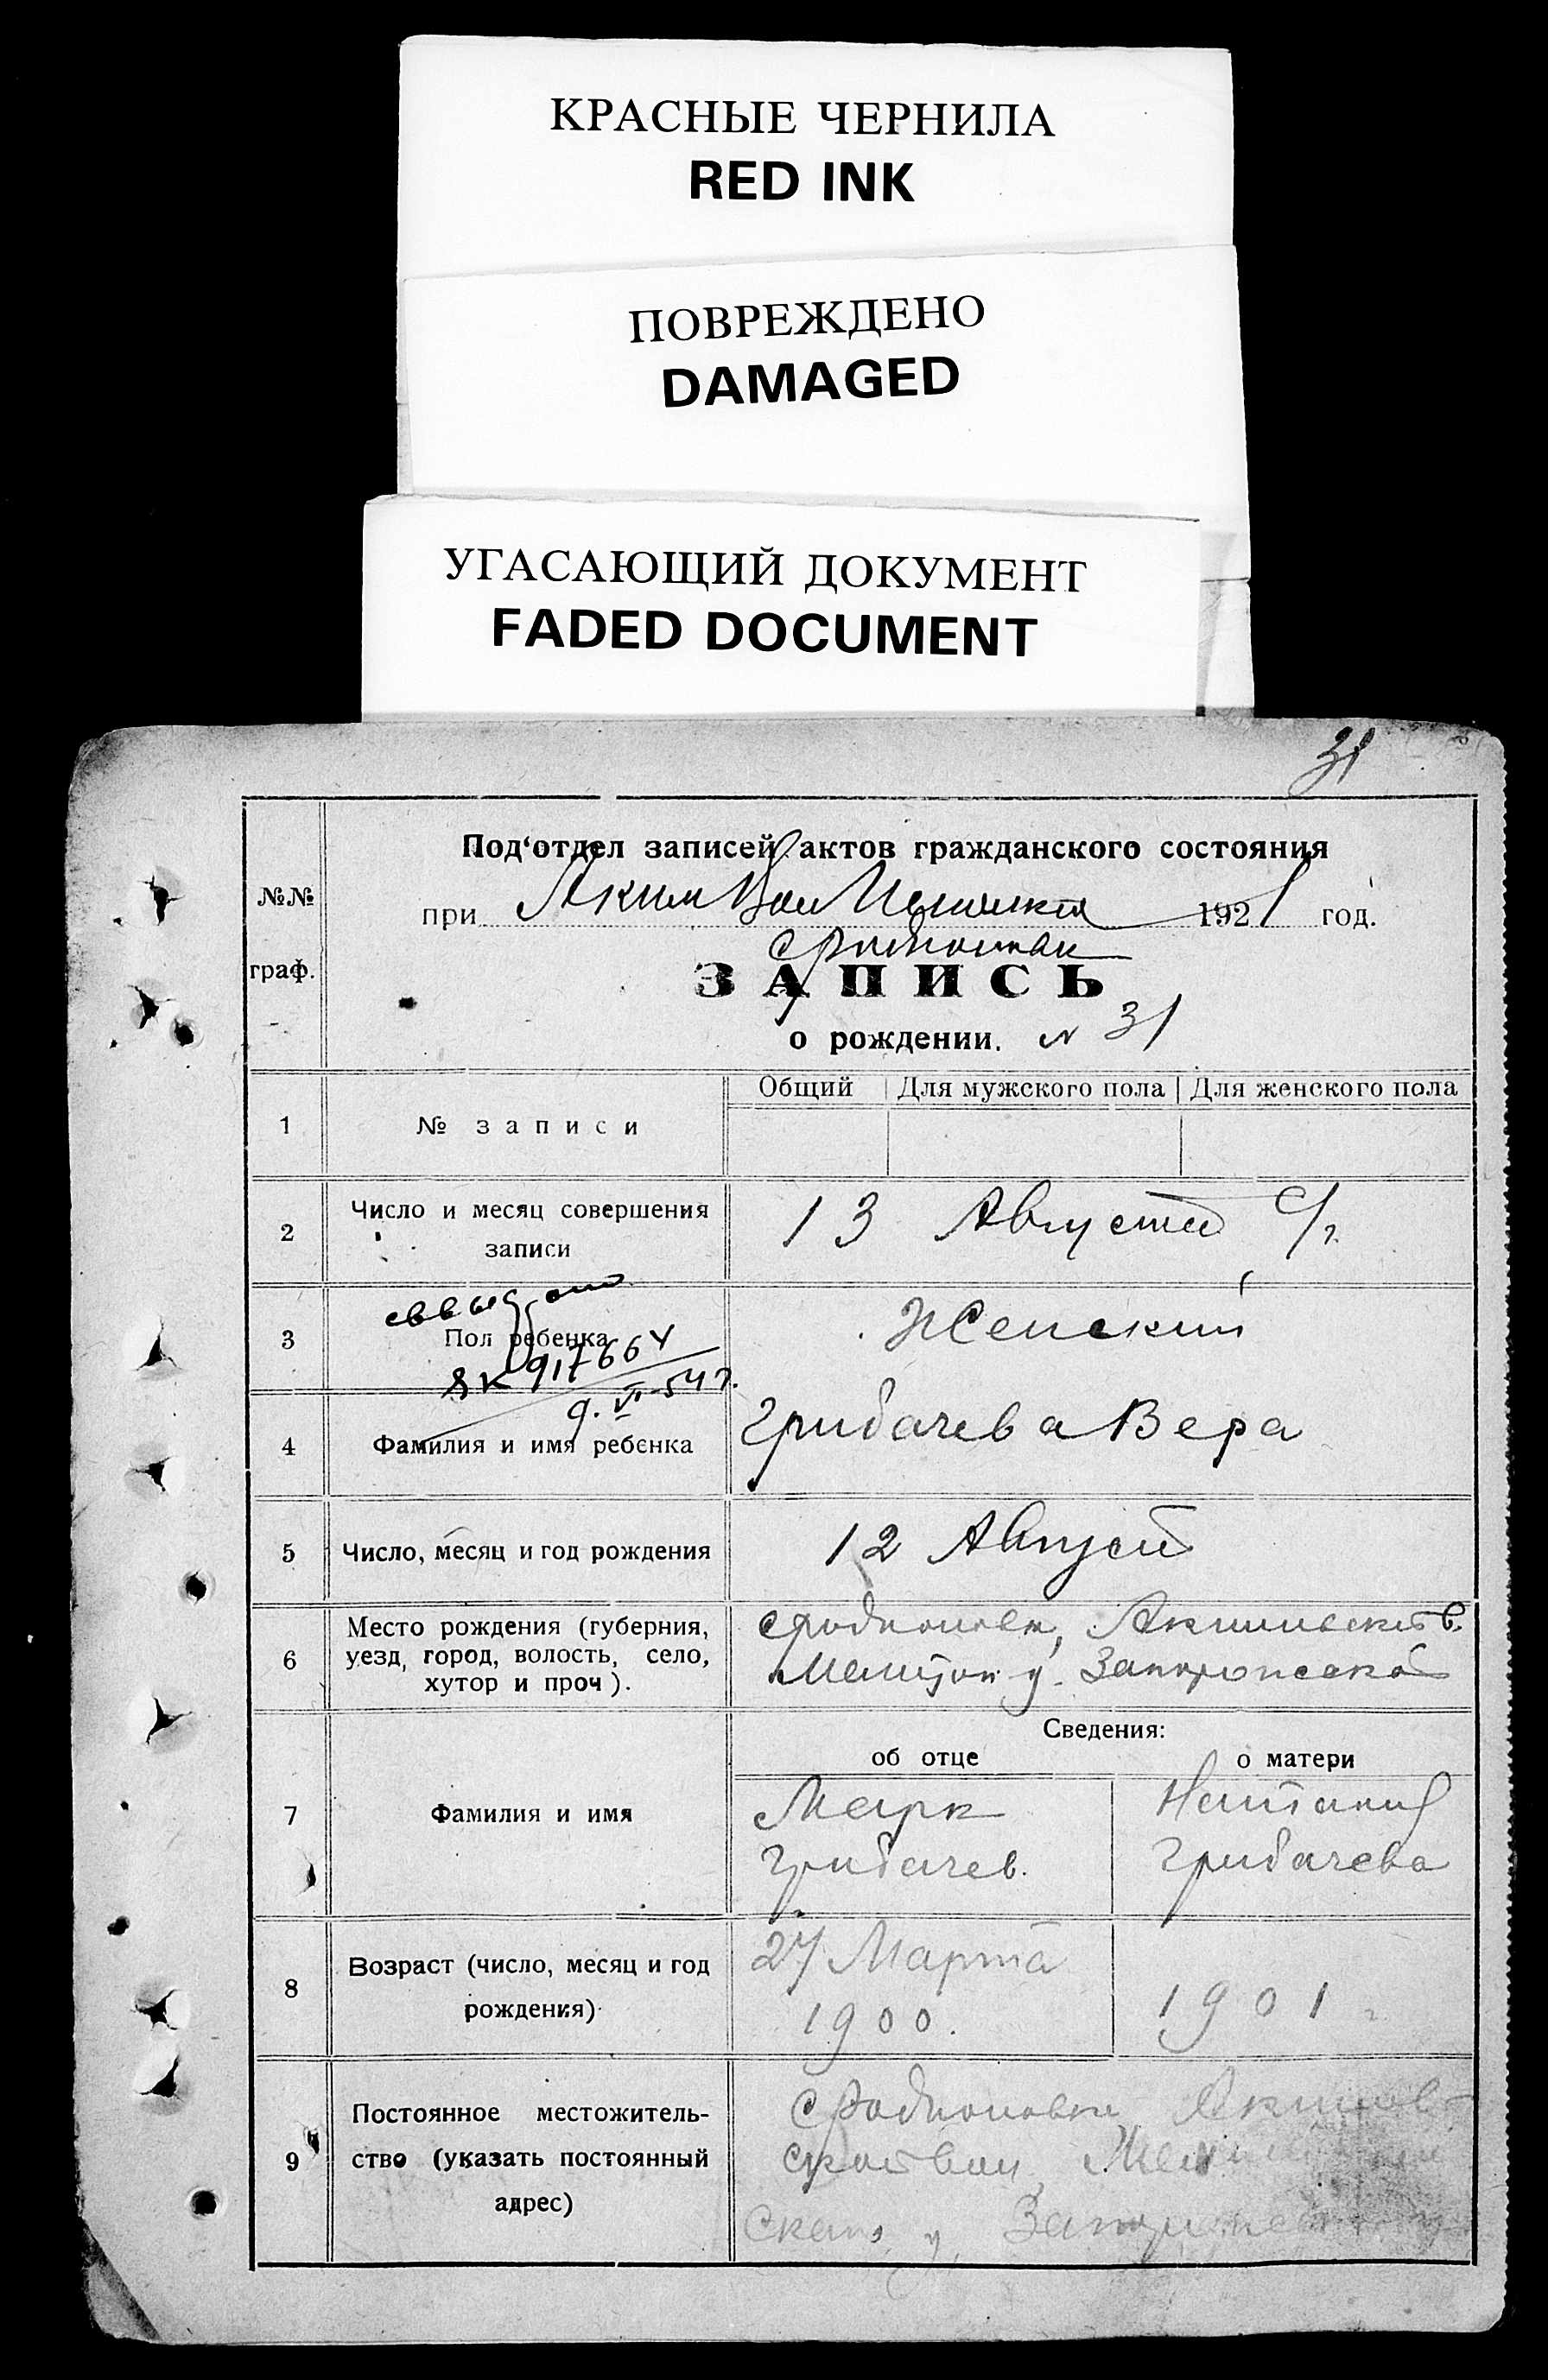 КРАСНЫЕ ЧЕРНИЛА
RED INK
ПОВРЕЖДЕНО
DAMAGED
УГАСАЮЩИЙ ДОКУМЕНТ
FADED DOCUMENT
31
Под'отдел записей актов гражданского состояния
№№
граф.
при 1921 год.
ЗАПИСЬ
о рождении. N 31
Общий Для мужского пола Для женского пола
1 № записи
2 Число и месяц совершения записи
13 Августа с/г.
3 Пол ребенка
Женский
ЯК 917664
9. VI-54 г.
4 Фамилия и имя ребенка
Грибачева Вера
5 Число, месяц и год рождения
12 Август
6 Место рождения (губерния,
уезд, город, волость, село,
хутор и проч).
с Родионовка, в.
у. Запорожской
Сведения:
об отце о матери
7 Фамилия и имя
Марк
Грибачев.
Наталия
Грибачева
8 Возраст (число, месяц и год
рождения)
27 Марта
1900.
1901 г
9 Постоянное местожитель-
ство (указать постоянный
адрес)
с Родионовка Акимов-
ской вол
у.